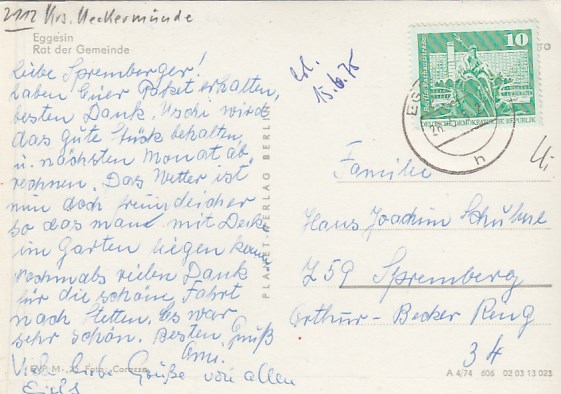 2112 Krs. Ueckermünde
Eggesin
Rat der Gemeinde
Liebe Spremberger!
haben Euer Paket erhalten,
besten Dank. Uschi wird
das gute Stück behalten
u. nächsten Monat ab
rechnen. Das Wetter ist
nun doch freundlicher
so das man mit Decke
im Garten liegen kann
nochmals vielen Dank
für die schöne Fahrt
nach Stetten. Es war
sehr schön. Besten Gruß
Viele liebe Grüße von allen
15.6.75
10
DEUTSCHE DEMOKRATISCHE REPUBLIK
h
PLANET-VERLAG BERLIN
Familie
Hans Joachim
759 Spremberg
Arthur-Becker Ring
34
EVP M -,20 Foto:
A 4/74 606 02 03 13 023